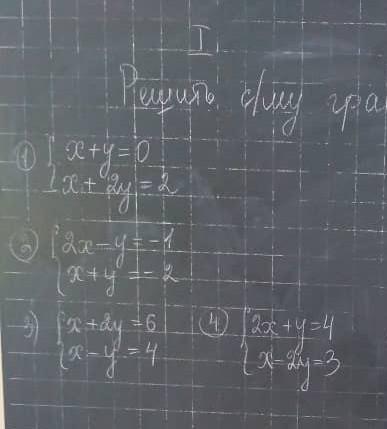 I
Решить с/му гра
① { x+y=0
x+2y=2
② { 2x-y=-1
x+y=-2
3) { x+2y=6
x-y=4
④ { 2x+y=4
x-2y=3